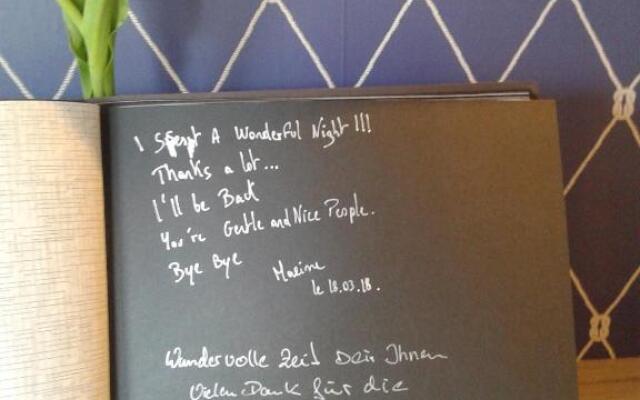 I Spent A Wonderful Night !!!
Thanks a lot...
I'll be Back
You're Gentle and Nice People.
Bye Bye
Maxime
le 18.03.18.
Wundervolle Zeit bei Ihnen
Vielen Dank für die